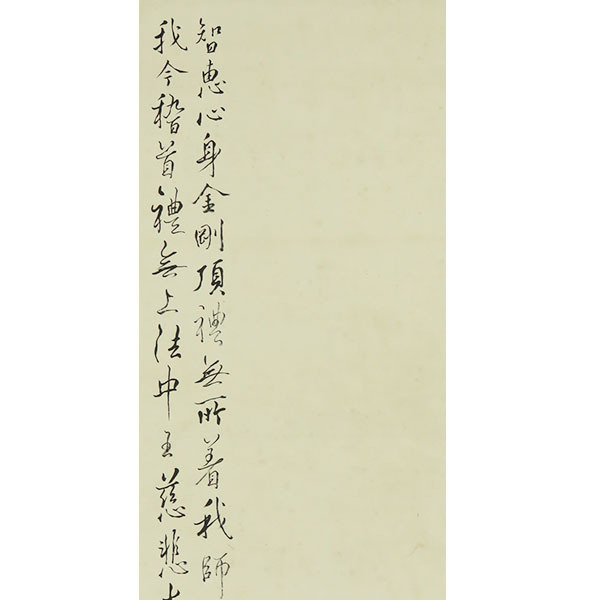 智恵心身金剛頂禮無所着我師
我今稽首禮無上法中王慈悲大